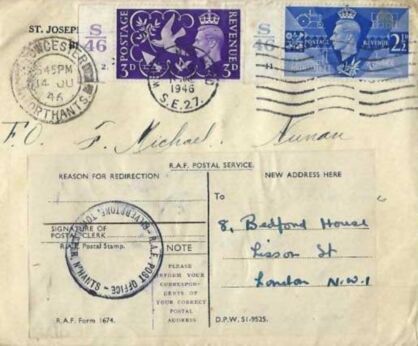 ST. JOSEPH
S/46
2.
POSTAGE REVENUE
3D 3D
S/46
POSTAGE REVENUE
2½
5 45PM
14 JU
46
NORTHANTS.
1946
S.E.27.
F/O F. Michael. Nunan
R.A.F. POSTAL SERVICE.
REASON FOR REDIRECTION
NEW ADDRESS HERE
To
8, Bedford House
Lisson St
London N.W.1
SIGNATURE OF
POSTAL CLERK
R.A.F. Postal Stamp.
R.A.F. POST OFFICE
NOTE
PLEASE
INFORM YOUR
CORRESPON-
DENTS OF
YOUR CORRECT
POSTAL
ADDRESS
R.A.F. Form 1674.
D.P.W. 51-9525.